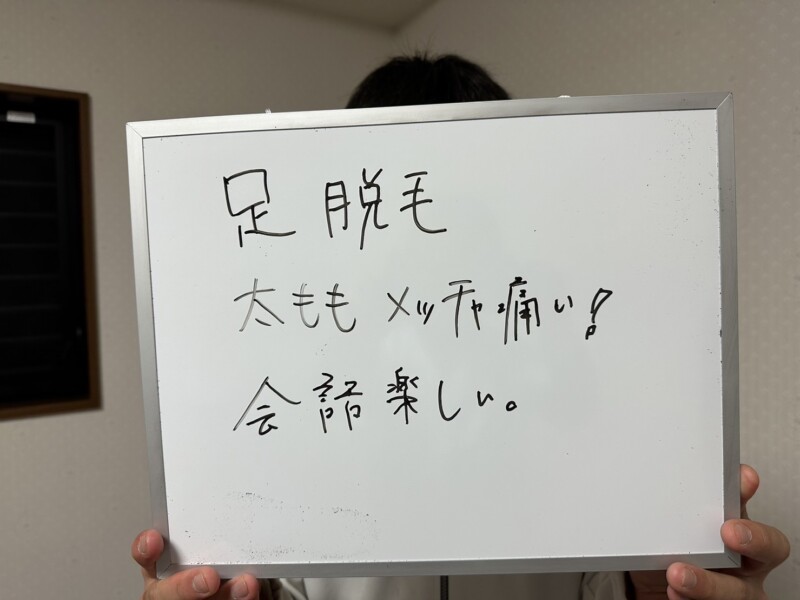 足 脱毛
太もも メッチャ痛い!
会話楽しい。